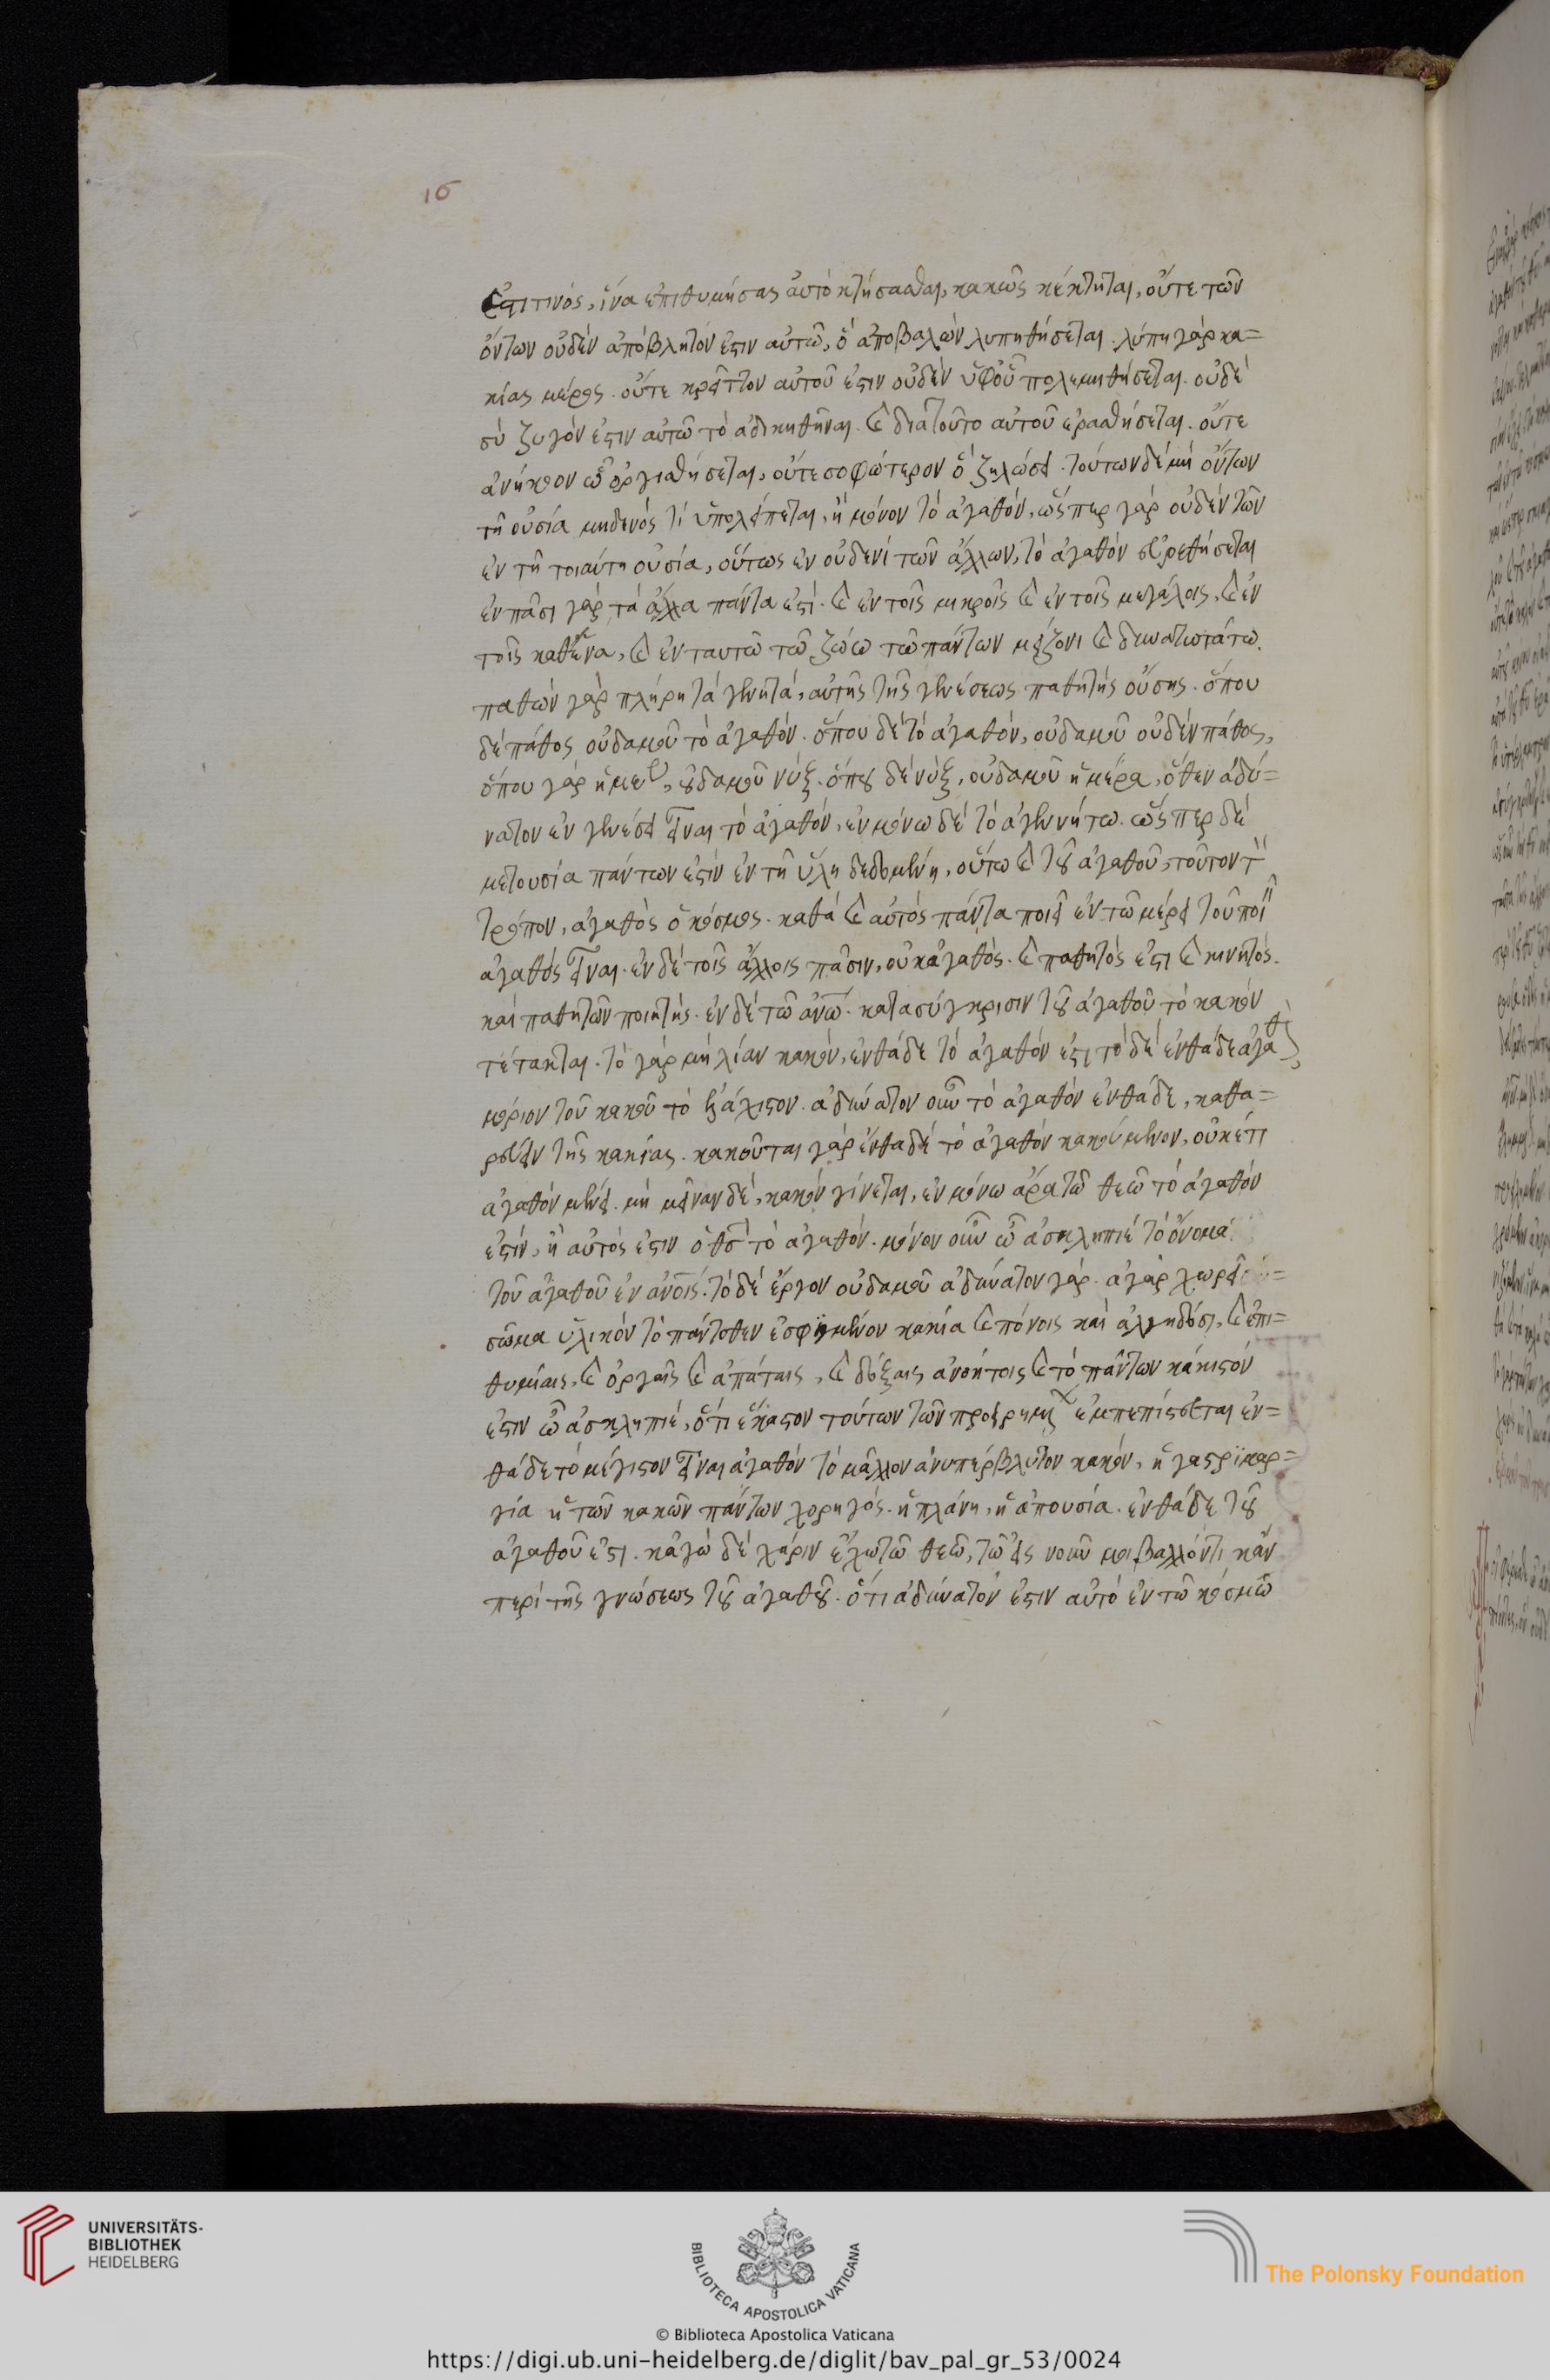 16
ἐστι τινός, ἵνα ἐπιθυμήσας αὐτὸ κτήσασθαι, κακῶς κέκτηται, οὔτε τῶν
ὄντων οὐδὲν ἀπόβλητόν ἐστιν αὐτῶ, ὃ ἀποβαλὼν λυπηθήσεται. λύπη γὰρ κα=
κίας μέρος. οὔτε κρεῖττον αὐτοῦ ἐστιν οὐδὲν ὑφ' οὗ πολεμηθήσεται. οὐδὲ
σύζυγόν ἐστιν αὐτῶ τὸ ἀδικηθῆναι. καὶ διατοῦτο αὐτοῦ ἐρασθήσεται. οὔτε
ἀνήκοον ὧ ὀργισθήσεται, οὔτε σοφώτερον ὃ ζηλώσει. τούτων δὲ μὴ ὄντων
τῆ οὐσία μηδενὸς τί ὑπολείπεται, ἢ μόνον τὸ ἀγαθόν, ὥσπερ γὰρ οὐδὲν τῶν
ἐν τῆ τοιαύτη οὐσία, οὕτως ἐν οὐδενὶ τῶν ἄλλων, τὸ ἀγαθὸν εὑρεθήσεται
ἐν πᾶσι γὰρ τὰ ἄλλα πάντα ἐστί. καὶ ἐν τοῖς μικροῖς καὶ ἐν τοῖς μεγάλοις, καὶ ἐν
τοῖς καθ' ἕνα, καὶ ἐν ταυτῶ τῶ ζώω τῶ πάντων μείζονι καὶ δυνατωτάτω.
παθῶν γὰρ πλήρη τὰ γεννητά, αὐτῆς τῆς γενέσεως παθητῆς οὔσης. ὅπου
δὲ πάθος οὐδαμοῦ τὸ ἀγαθόν. ὅπου δὲ τὸ ἀγαθόν, οὐδαμοῦ οὐδὲν πάθος,
ὅπου γὰρ ἡμέρα, οὐδαμοῦ νύξ. ὅπου δὲ νύξ, οὐδαμοῦ ἡμέρα, ὅθεν ἀδύ=
νατον ἐν γενέσει εἶναι τὸ ἀγαθόν, ἐν μόνω δὲ τὸ ἀγεννήτω. ὥσπερ δὲ
μετουσία πάντων ἐστὶν ἐν τῆ ὕλη δεδομένη, οὕτω καὶ τοῦ ἀγαθοῦ, τοῦτον τὸν
τρόπον, ἀγαθὸς ὁ κόσμος. καθὰ καὶ αὐτὸς πάντα ποιεῖ ἐν τῶ μέρει τοῦ ποιεῖν
ἀγαθὸς εἶναι. ἐν δὲ τοῖς ἄλλοις πᾶσιν, οὐκ ἀγαθός. καὶ παθητός ἐστι καὶ κινητός.
καὶ παθητῶν ποιητής. ἐν δὲ τῶ ἀνω. κατασύγκρισιν τοῦ ἀγαθοῦ τὸ κακὸν
τέτακται. τὸ γὰρ μὴ λίαν κακόν, ἐνθάδε τὸ ἀγαθόν ἐστι τὸ δὲ ἐνθάδε ἀγαθ
μόριον τοῦ κακοῦ τὸ ἐλάχιστον. ἀδύνατον οὖν τὸ ἀγαθὸν ἐνθάδε, καθα=
ρεύειν τῆς κακίας. κακοῦται γὰρ ἐνθαδὲ τὸ ἀγαθὸν κακούμενον, οὐκέτι
ἀγαθὸν μένει. μὴ μεῖναν δέ, κακὸν γίνεται, ἐν μόνω ἄρα τῶ θεῶ τὸ ἀγαθόν
ἐστίν, ἢ αὐτός ἐστιν ὁ θσ τὸ ἀγαθόν. μόνον οὖν ὦ ἀσκληπιὲ τὸ ὄνομα
τοῦ ἀγαθοῦ ἐν ἀνοις. τὸ δὲ ἔργον οὐδαμοῦ ἀδύνατον γάρ. ἀ γὰρ χωρεῖ
σῶμα ὑλικὸν τὸ πάντοθεν ἐσφιγμένον κακία καὶ πόνοις καὶ ἀλγηδόσι, καὶ ἐπι=
θυμίαις, καὶ ὀργαῖς καὶ ἀπάταις, καὶ δόξαις ἀνοήτοις καὶ τὸ πάντων κάκιστόν
ἐστιν ὦ ἀσκληπιέ, ὅτι ἕκαστον τούτων τῶν προειρημένων ἐμπεπίστευται ἐν=
θάδε τὸ μέγιστον εἶναι ἀγαθὸν τὸ μᾶλλον ἀνυπέρβλητον κακόν, ἡ γαστριμαρ=
γία ἡ τῶν κακῶν πάντων χορηγός. ἡ πλάνη, ἡ ἀπουσία. ἐνθάδε τοῦ
ἀγαθοῦ ἐστι. κἀγὼ δὲ χάριν ἔχω τῶ θεῶ, τῶ εἰς νοῦν μοι βαλλόντι κἂν
περὶ τῆς γνώσεως τοῦ ἀγαθοῦ. ὅτι ἀδύνατόν ἐστιν αὐτὸ ἐν τῶ κόσμω
UNIVERSITÄTS-
BIBLIOTHEK
HEIDELBERG
BIBLIOTECA APOSTOLICA VATICANA
The Polonsky Foundation
© Biblioteca Apostolica Vaticana
https://digi.ub.uni-heidelberg.de/diglit/bav_pal_gr_53/0024